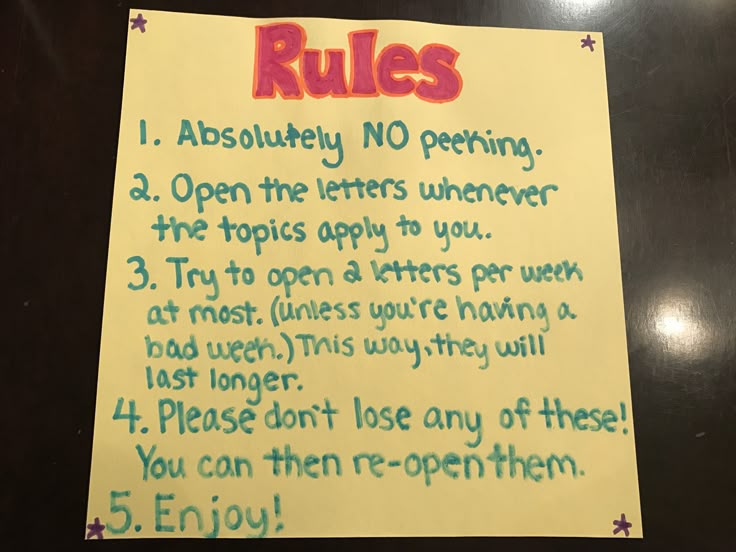 Rules
1. Absolutely NO peeking.
2. Open the letters whenever
the topics apply to you.
3. Try to open 2 letters per week
at most. (unless you're having a
bad week.) This way, they will
last longer.
4. Please don't lose any of these!
You can then re-open them.
5. Enjoy!